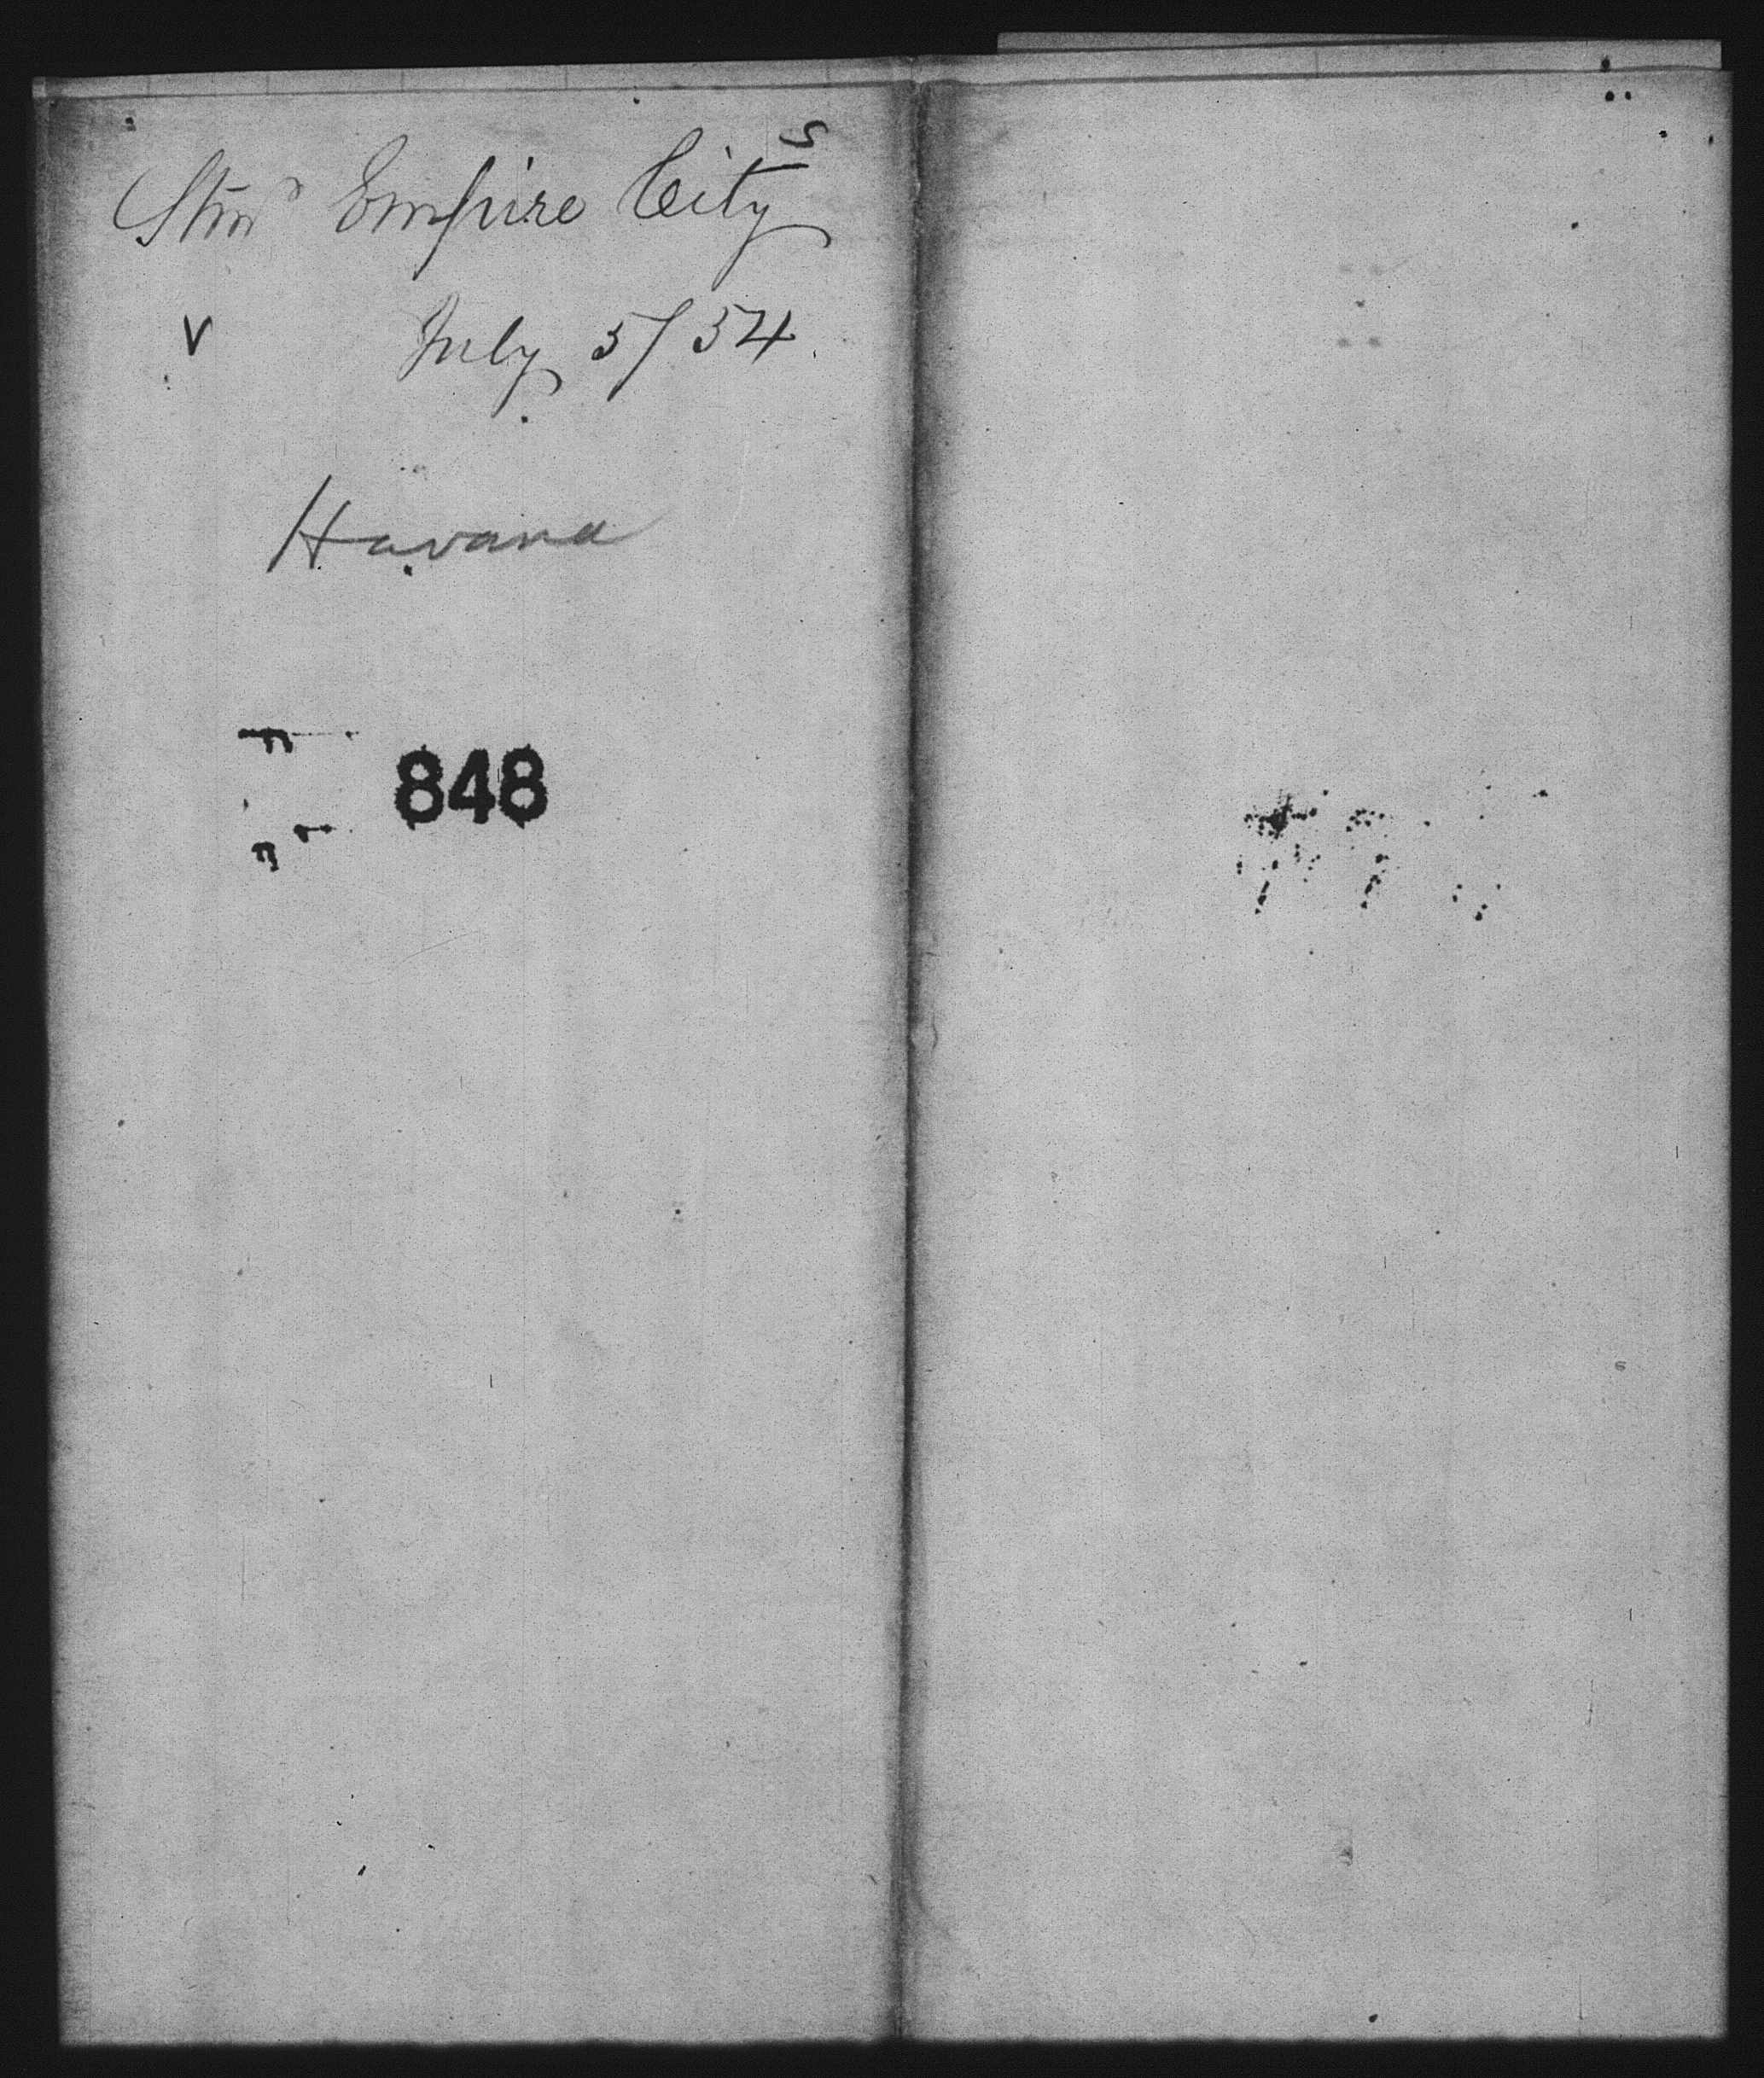 Stmr Empire City
V July 5/54
Havana
848